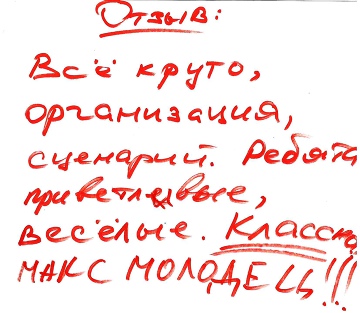 Отзыв:
Всё круто,
организация,
сценарий. Ребята
приветливые,
весёлые. Классн
МАКС МОЛОДЕЦ!!!